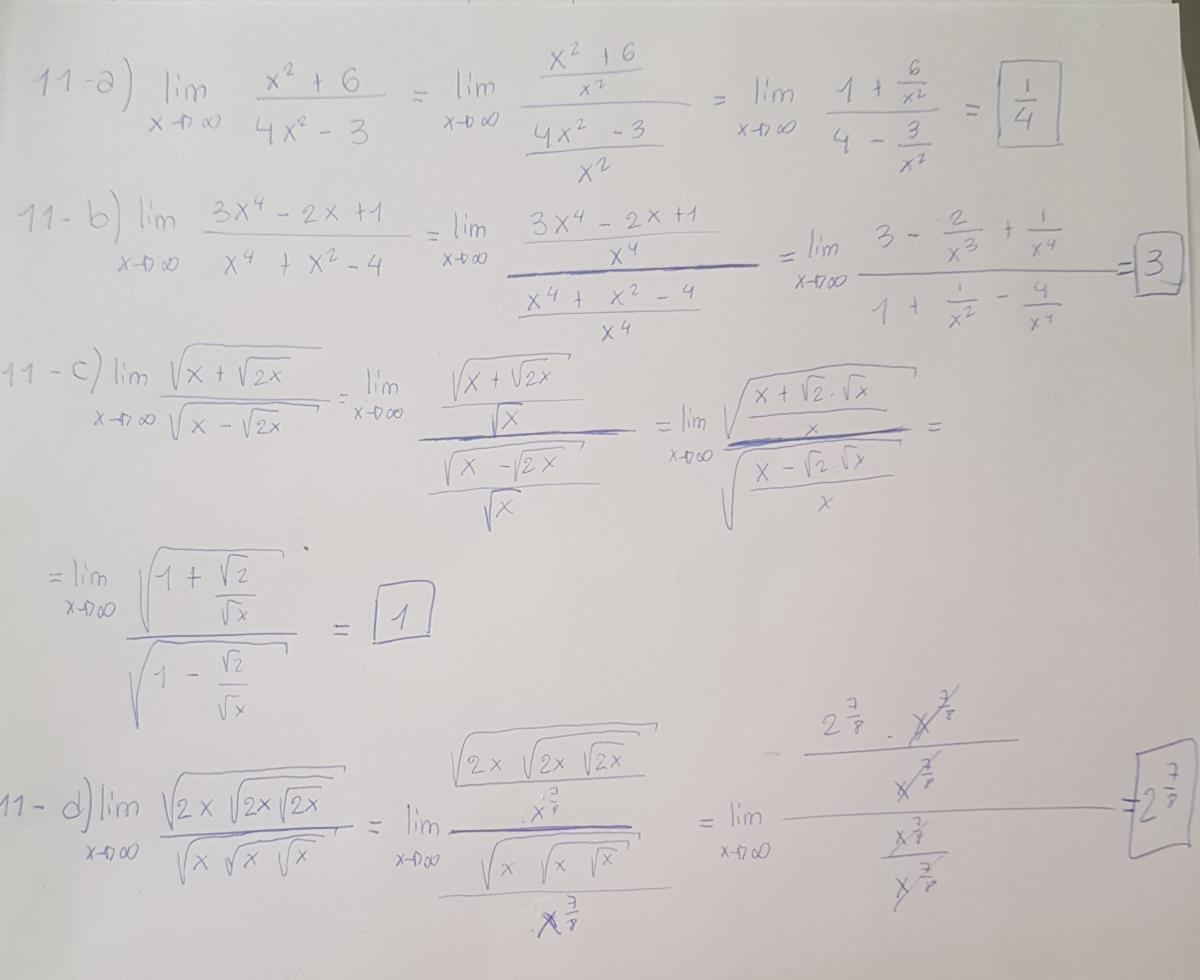 11-a) lim x→∞ (x² + 6)/(4x² - 3) = lim x→∞ ((x² + 6)/x²)/((4x² - 3)/x²) = lim x→∞ (1 + 6/x²)/(4 - 3/x²) = 1/4
11-b) lim x→∞ (3x⁴ - 2x + 1)/(x⁴ + x² - 4) = lim x→∞ ((3x⁴ - 2x + 1)/x⁴)/((x⁴ + x² - 4)/x⁴) = lim x→∞ (3 - 2/x³ + 1/x⁴)/(1 + 1/x² - 4/x⁴) = 3
11-c) lim x→∞ √(x + √(2x))/√(x - √(2x)) = lim x→∞ (√(x + √(2x))/√x)/(√(x - √(2x))/√x) = lim x→∞ √((x + √2·√x)/x)/√((x - √2·√x)/x) =
= lim x→∞ √(1 + √2/√x)/√(1 - √2/√x) = 1
11-d) lim x→∞ √(2x√(2x√(2x)))/√(x√(x√x)) = lim x→∞ (√(2x√(2x√(2x)))/x^(7/8))/(√(x√(x√x))/x^(7/8)) = lim x→∞ (2^(7/8) · x^(7/8)/x^(7/8))/(x^(7/8)/x^(7/8)) = 2^(7/8)